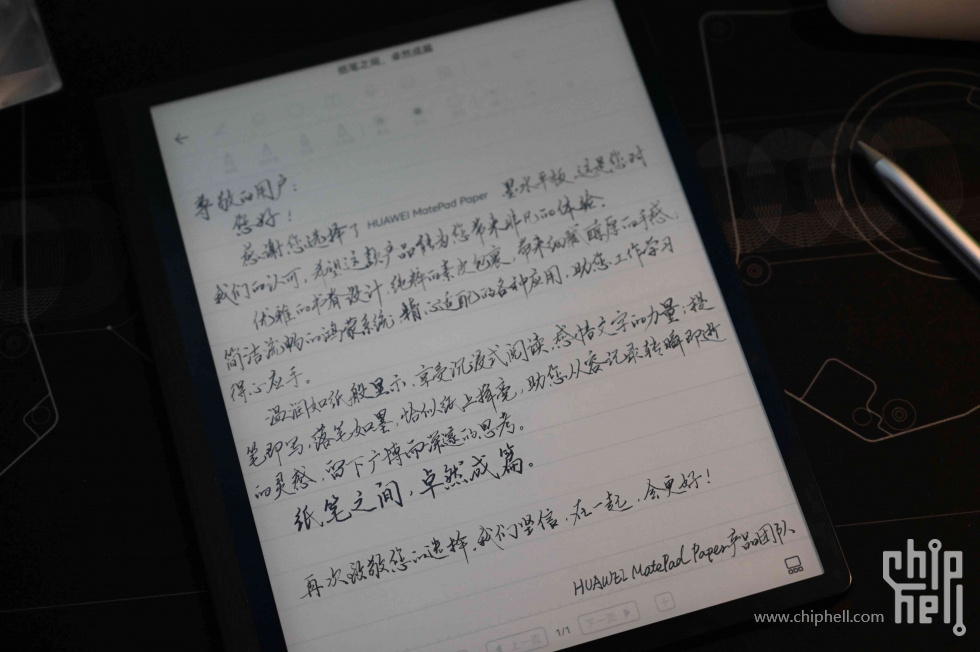 纸笔之间，卓然成篇
尊敬的用户：
您好！
感谢您选择了 HUAWEI MatePad Paper 墨水平板，这是您对
我们的认可，希望这款产品能为您带来非凡的体验。
优雅的书脊设计，纯粹的素皮包裹，带来细腻醇厚的手感；
简洁流畅的鸿蒙系统，精心适配的各种应用，助您工作学习
得心应手。
温润如纸般显示，享受沉浸式阅读，感悟文字的力量；提
笔即写，落笔如墨，恰似纸上挥毫，助您从容记录转瞬即逝
的灵感，留下广博而深邃的思考。
纸笔之间，卓然成篇。
再次致敬您的选择，我们坚信，在一起，会更好！
HUAWEI MatePad Paper产品团队
上一页 1/1 下一页
www.chiphell.com
chip
hell